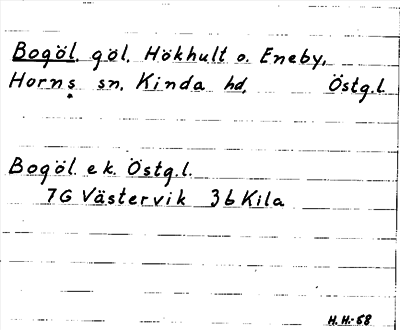 Bogöl. göl. Hökhult o. Eneby,
Horns sn. Kinda hd. Östg.l.
Bogöl. ek. Östg.l.
7G Västervik 3b Kila
H.H.-58